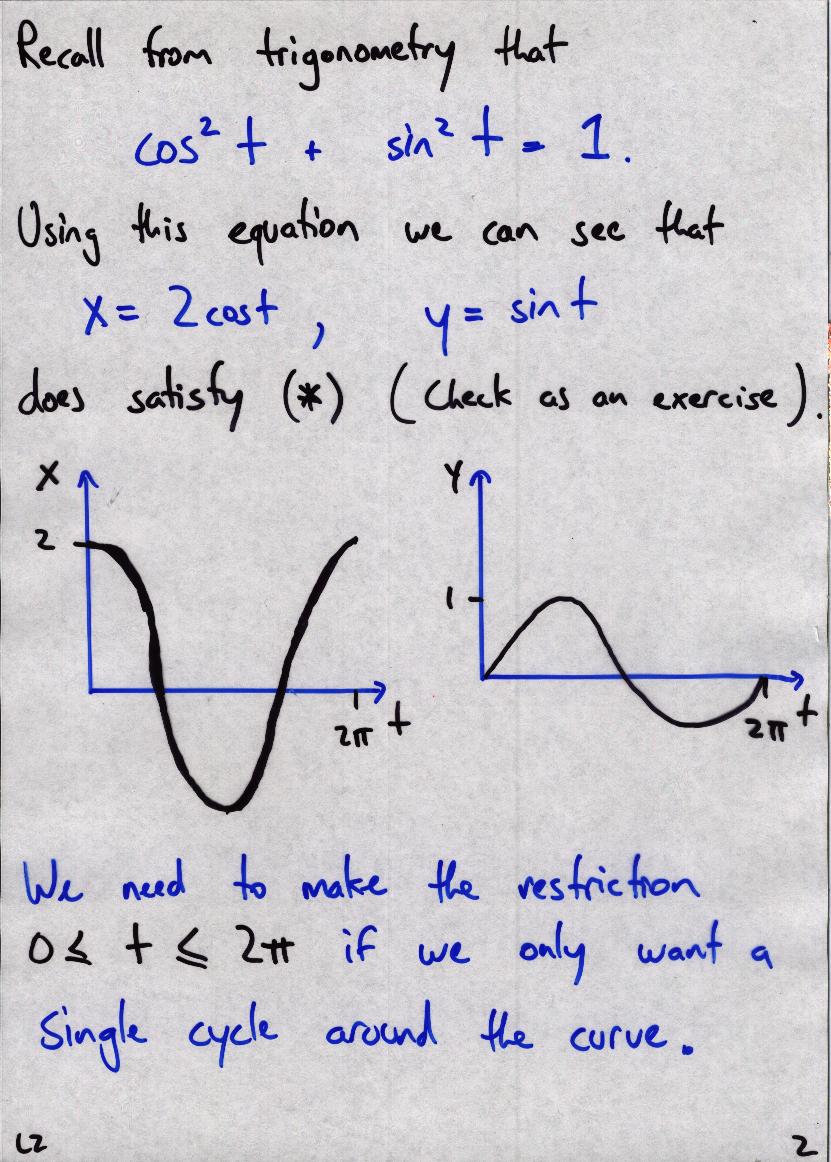 Recall from trigonometry that
cos² t + sin² t = 1.
Using this equation we can see that
x = 2 cos t , y = sin t
does satisfy (*) (Check as an exercise).
X
2
2π t
Y
1
2π t
We need to make the restriction
0 ≤ t ≤ 2π if we only want a
single cycle around the curve.
L2 2